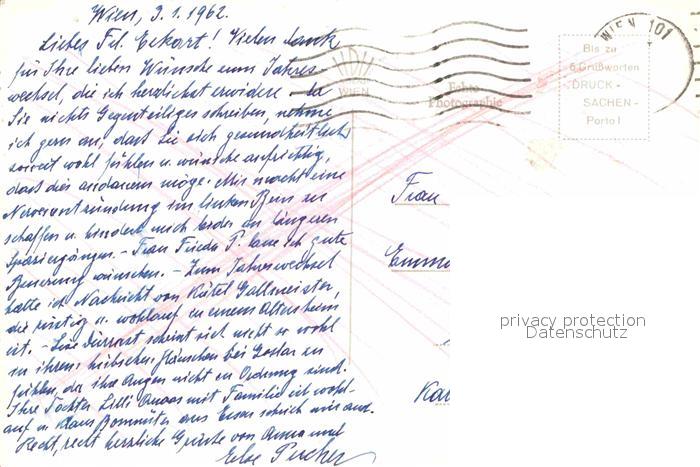 Wien, 3.1.1962.
Liebes Frl. Eckart! Vielen Dank
für Ihre lieben Wünsche zum Jahres
wechsel, die ich herzlichst erwidere. Da
Sie nichts Gegenteiliges schreiben, nehme
ich gern an, dass Sie sich gesundheitlich
soweit wohl fühlen u. wünsche aufrichtig,
dass dies andauern möge. Mir macht eine
Nervenentzündung im linken Bein zu
schaffen u. hindert mich leider an längeren
Spaziergängen. - Frau Frieda P. lasse ich gute
Besserung wünschen. - Zum Jahreswechsel
hatte ich Nachricht von Gallmeister,
die rüstig u. wohlauf in einem Altersheim
ist. - Lise scheint sich nicht so wohl
in ihrem hübschen Häuschen bei Goslar zu
fühlen, da ihre Augen nicht in Ordnung sind.
Ihre Tochter Lilli mit Familie ist wohl-
auf u. Klaus aus Essen schrieb mir auch.
Recht, recht herzliche Grüsse von Anna und
Else
WIEN
Echte
Photographie
WIEN 101
Bis zu
5 Grußworten
DRUCK-
SACHEN-
Porto!
Frau
Emm
Ka
privacy protection
Datenschutz